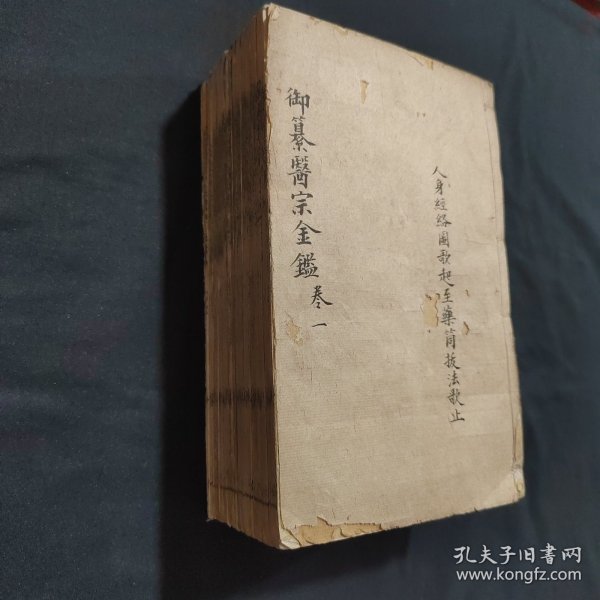 人身經絡圖歌起至藥筒拔法歌止
御纂醫宗金鑑 卷一
孔夫子旧书网
www.kongfz.com